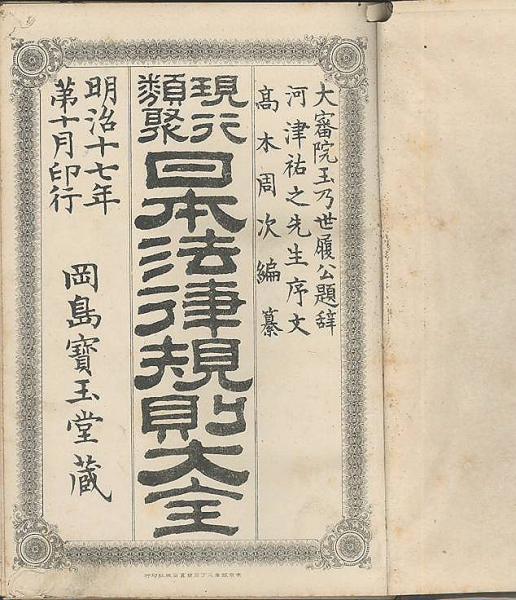 大審院玉乃世履公題辞
河津祐之先生序文
高木周次編纂
現行
類聚
日本法律規則大全
明治十七年
第十月印行
岡島寶玉堂蔵